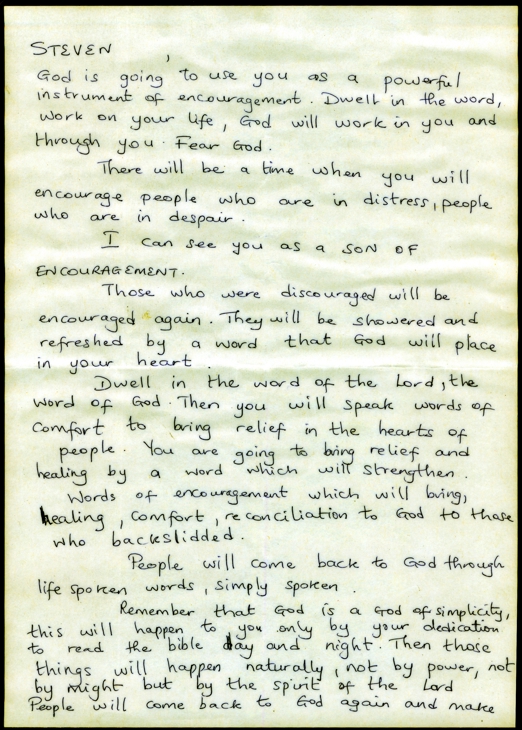 STEVEN,
God is going to use you as a powerful
instrument of encouragement. Dwell in the word,
work on your life, God will work in you and
through you. Fear God.
There will be a time when you will
encourage people who are in distress, people
who are in despair.
I can see you as a SON OF
ENCOURAGEMENT.
Those who were discouraged will be
encouraged again. They will be showered and
refreshed by a word that God will place
in your heart.
Dwell in the word of the Lord, the
word of God. Then you will speak words of
comfort to bring relief in the hearts of
people. You are going to bring relief and
healing by a word which will strengthen.
Words of encouragement which will bring,
healing, comfort, reconciliation to God to those
who backslidded.
People will come back to God through
life spoken words, simply spoken.
Remember that God is a God of simplicity,
this will happen to you only by your dedication
to read the bible day and night. Then those
things will happen naturally, not by power, not
by might but by the spirit of the Lord
People will come back to God again and make